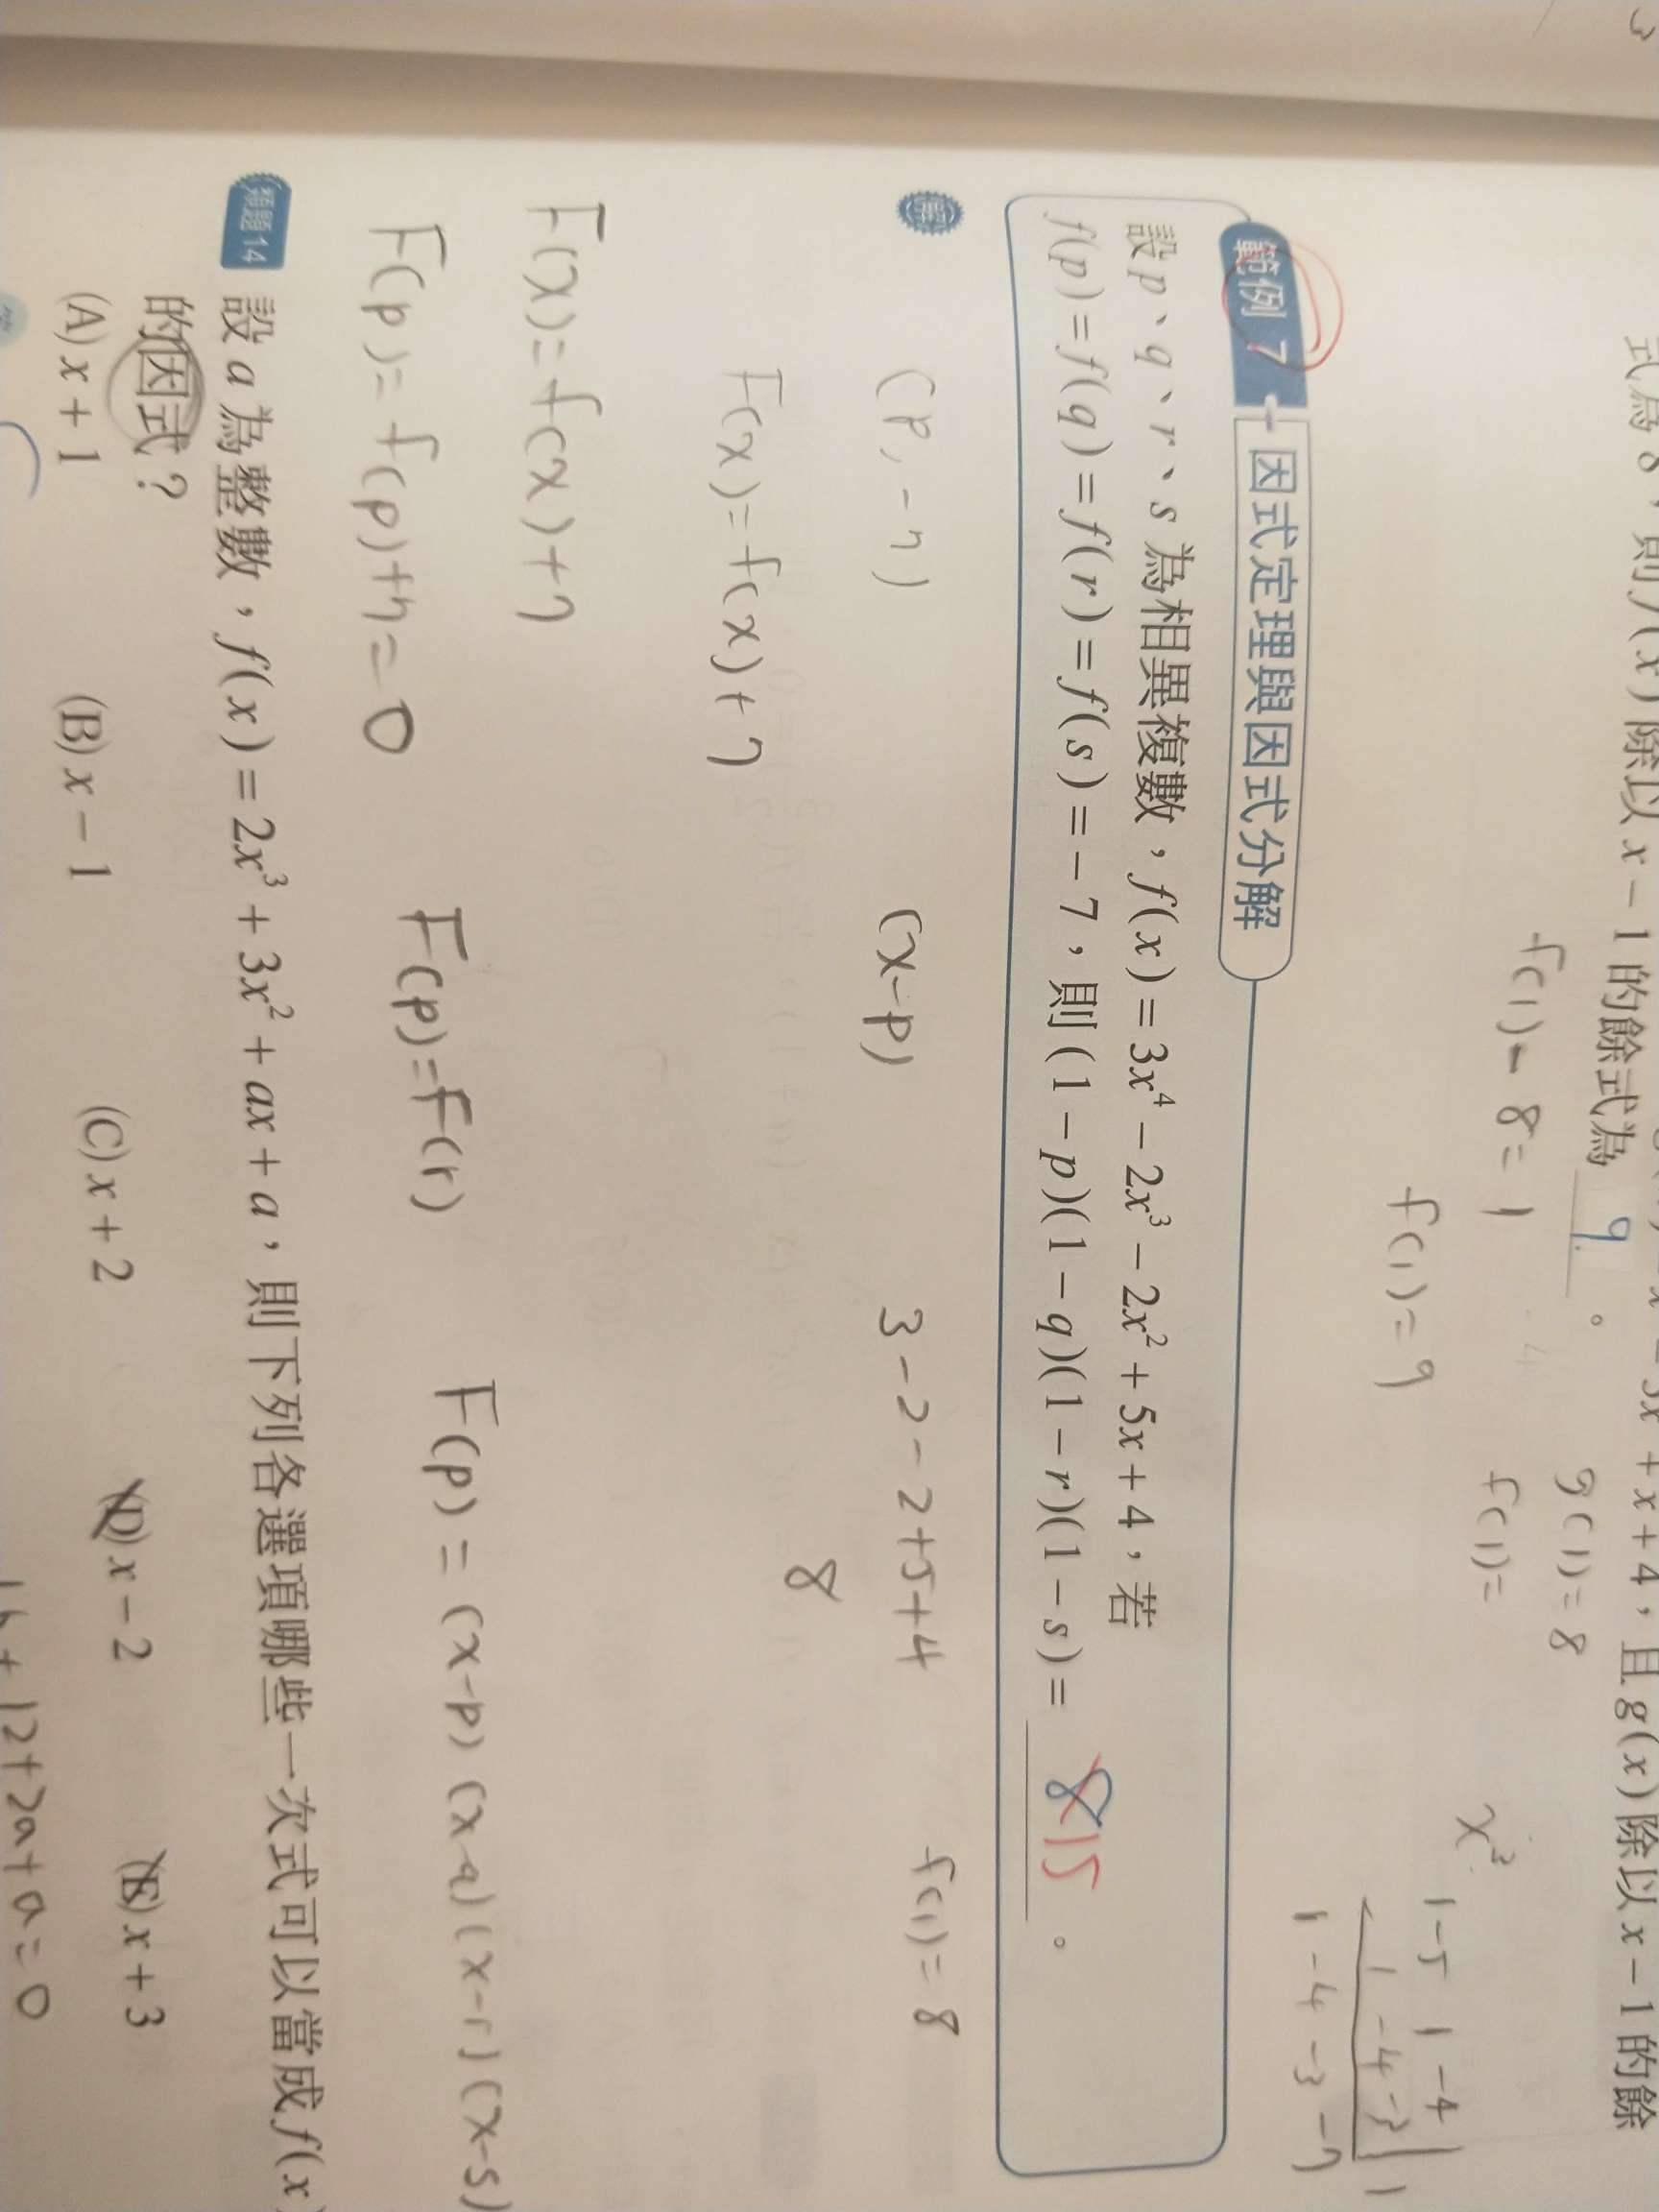 x - 5x + x + 4，且g(x)除以x - 1的餘
式為8，則f(x)除以x - 1的餘式為 9 。
g(1) = 8
f(1) - 8 = 1
f(1) =
x³
1 -5 1 -4
1 -4 -3
1
1 -4 -3 -7
f(1) = 9
範例 7 因式定理與因式分解
設p、q、r、s為相異複數，f(x) = 3x⁴ - 2x³ - 2x² + 5x + 4，若
f(p) = f(q) = f(r) = f(s) = -7，則(1 - p)(1 - q)(1 - r)(1 - s) = 8 15 。
解
(p, -7)
(x-p)
3-2-2+5+4
f(1) = 8
8
F(x) = f(x) + 7
F(x) = f(x) + 7
F(p) = f(p) + 7 = 0
F(p) = F(r)
F(p) = (x-p)(x-q)(x-r)(x-s)
類題14 設a為整數，f(x) = 2x³ + 3x² + ax + a，則下列各選項哪些一次式可以當成f(x)
的因式？
(A) x + 1 (B) x - 1 (C) x + 2 (D) x - 2 (E) x + 3
16 + 12 + 2a + a = 0